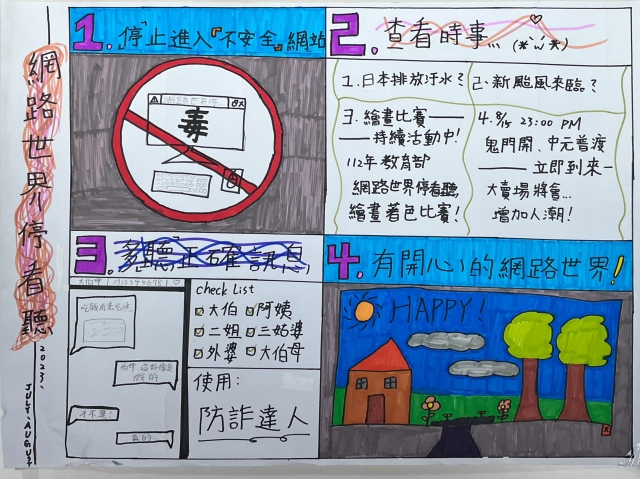 網路世界停看聽
2023. JULY-AUGUST
1. 停止進入『不安全』網站
毒
2. 查看時事
1. 日本排放汙水?
2. 新颱風來臨?
3. 繪畫比賽
持續活動中!
112年教育部
網路世界停看聽
繪畫著色比賽!
4. 8/5 23:00 PM
鬼門開、中元普渡
立即到來
大賣場將會...
增加人潮!
3. 多聽正確訊息
大伯母
check List
大伯 阿姨
二姐 三姑婆
外婆 大伯母
使用:
防詐達人
4. 有開心的網路世界!
HAPPY!